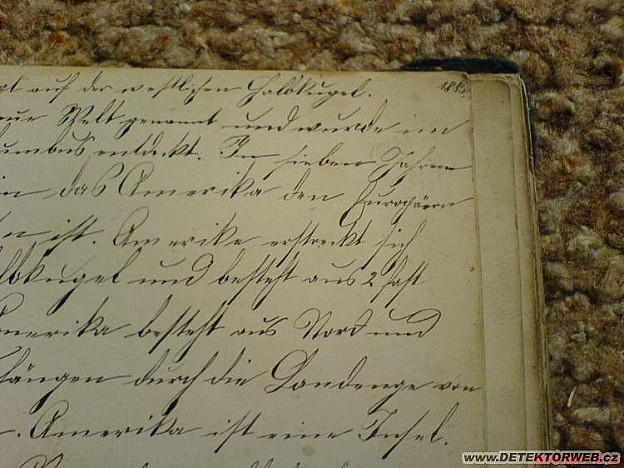 auf der westlichen Halbkugel. 1885.
Welt genannt und wurde im
umbus entdeckt. In sieben Jahren
in das Amerika den Europäern
ist. Amerika erstreckt sich
lbkugel und besteht aus 2 fast
Amerika besteht aus Nord und
hängen durch die Landenge von
Amerika ist eine Insel.
WWW.DETEKTORWEB.CZ